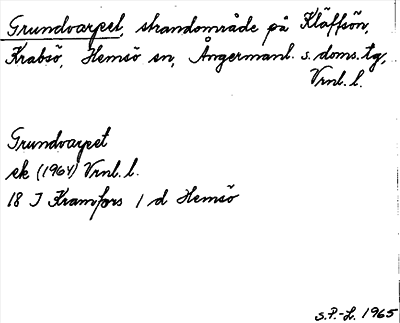 Grundvarpet, strandområde på Kläffsön,
Krabsö, Hemsö sn, Ångermanl. s. doms. tg,
Vrnl. l.
Grundvarpet
ek (1964) Vrnl. l.
18 I Kramfors 1 d Hemsö
S.P.-L. 1965